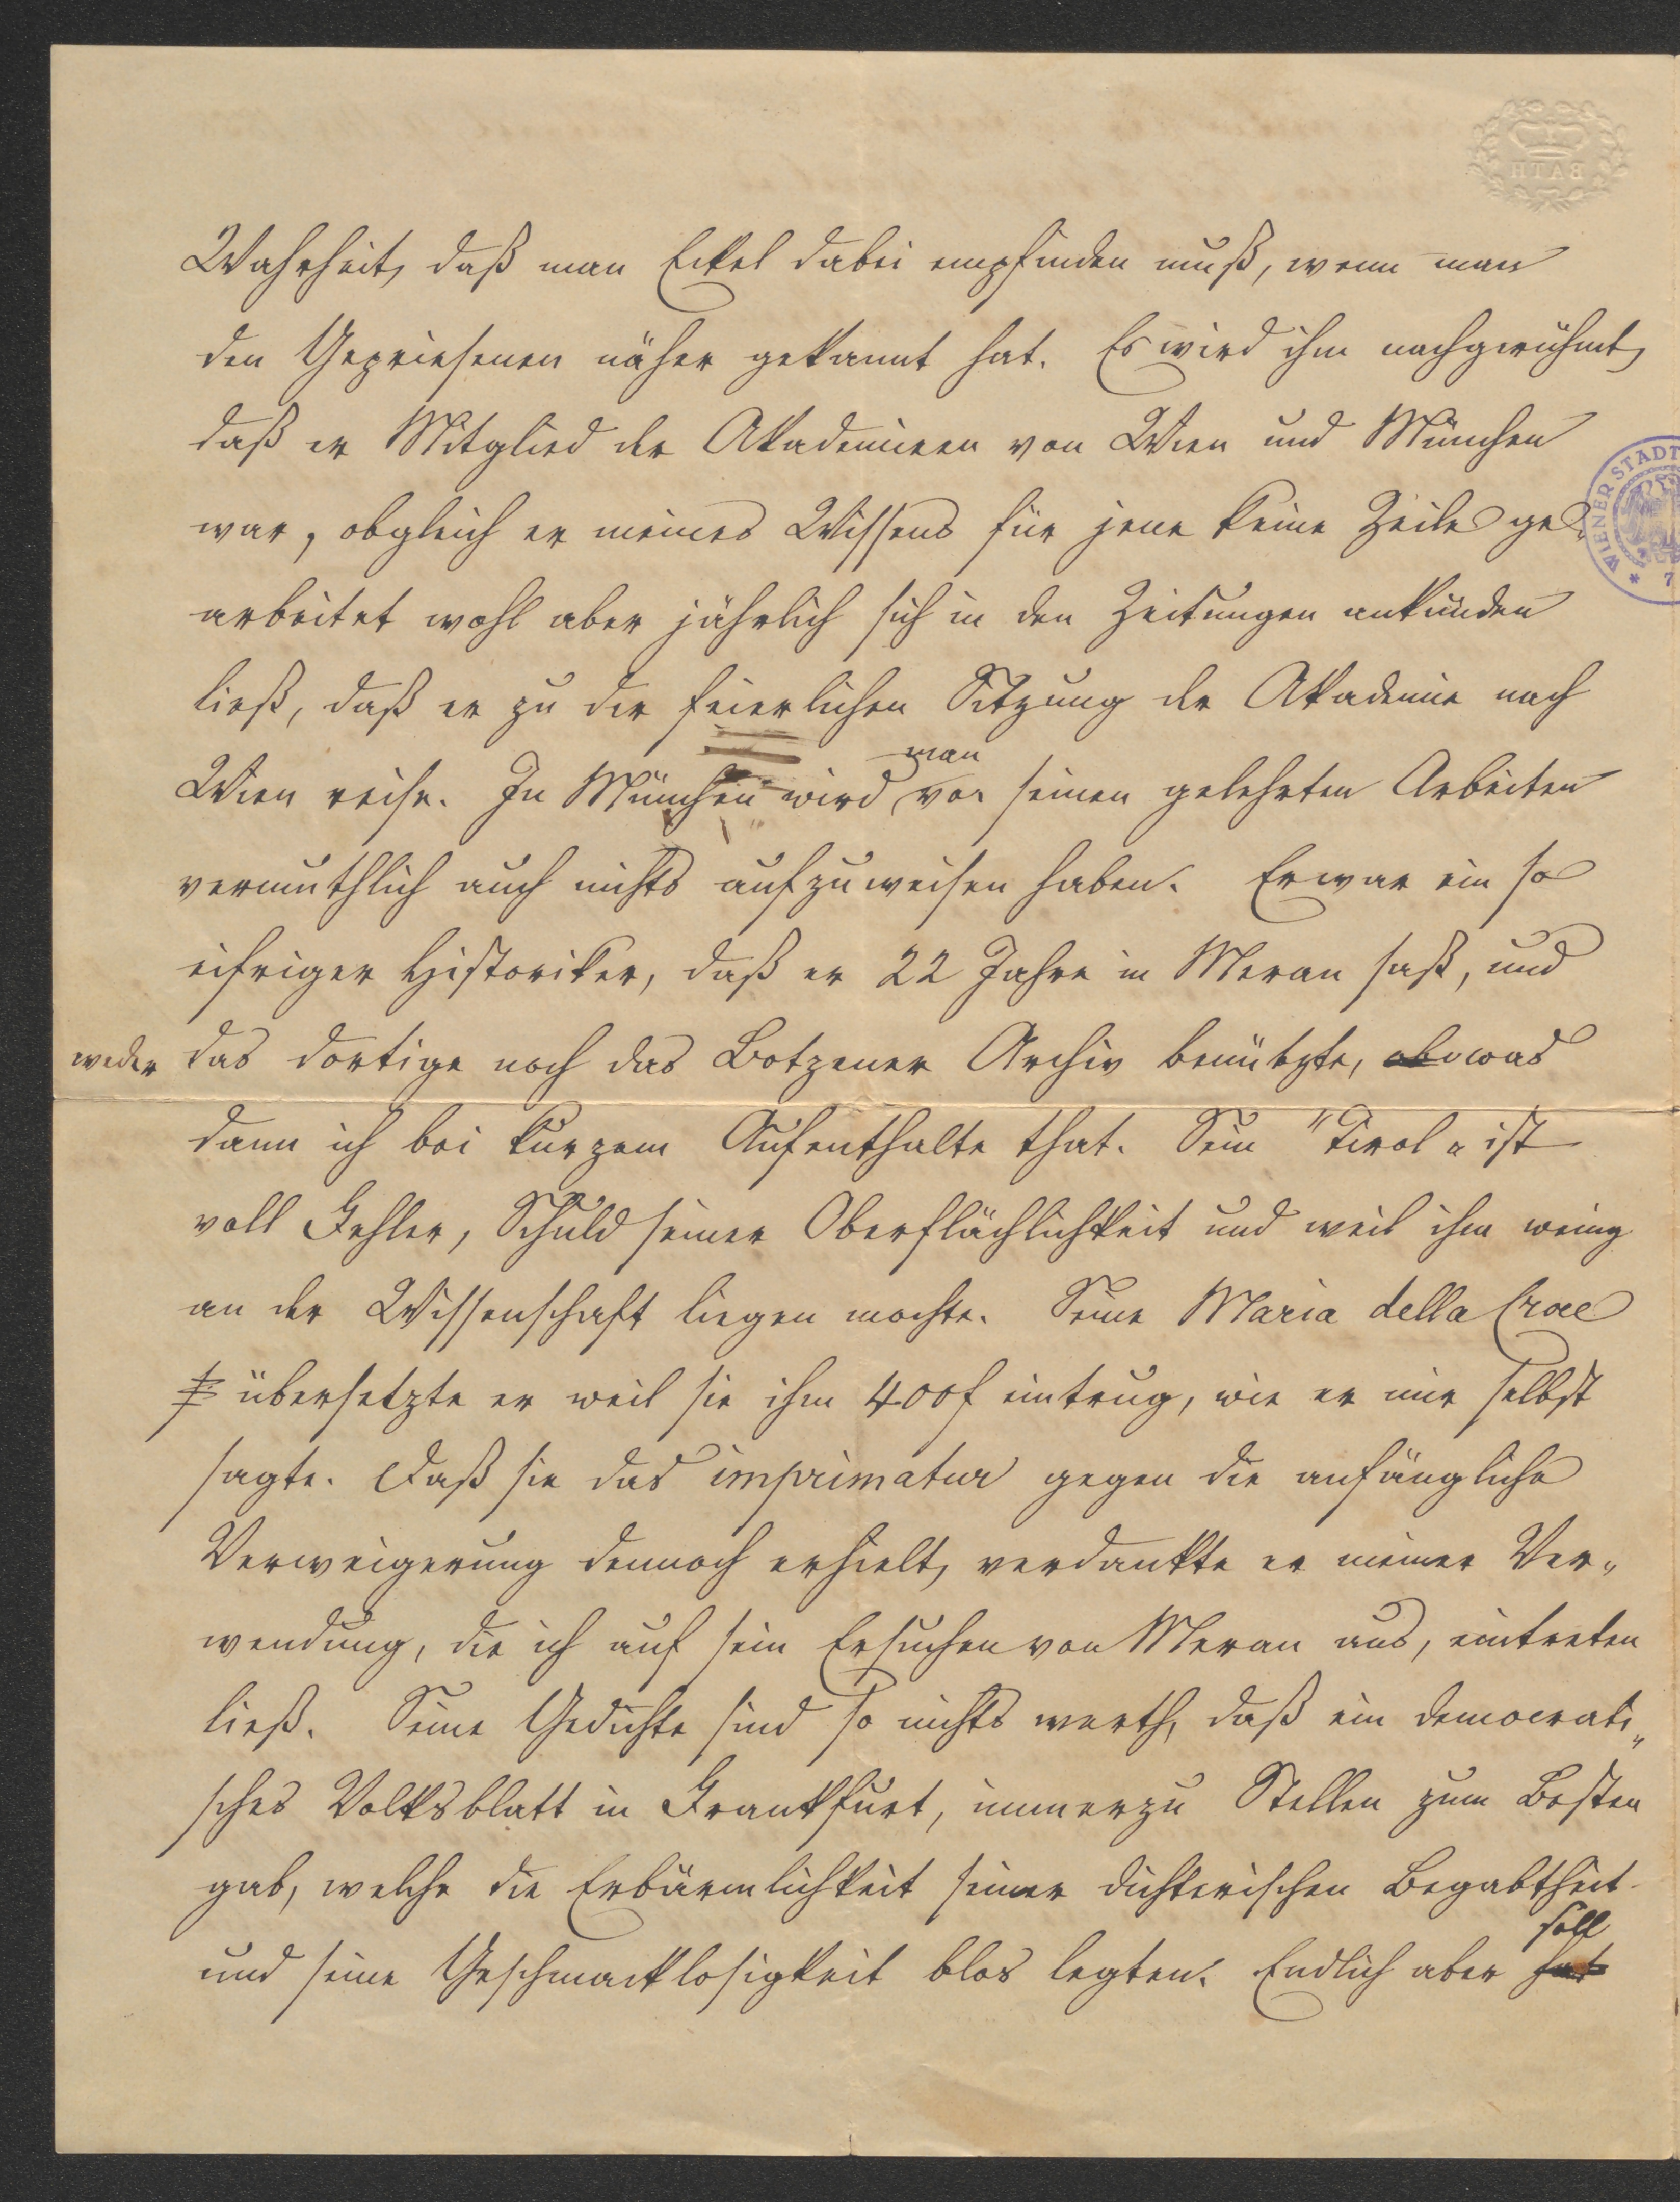 BATH
Wahrheit, daß man Eckel dabei empfinden muß, wenn man
den Gepriesenen näher gekannt hat. Es wird ihm nachgerühmt,
daß er Mitglied der Akademieen von Wien und München
WIENER STADT
war, obgleich er meines Wissens für jene keine Zeile ge-
* 7
arbeitet wohl aber jährlich sich in den Zeitungen ankünden
ließ, daß er zu der feierlichen Sitzung der Akademie nach
man
Wien reise. In München wird von seinen gelehrten Arbeiten
vermuthlich auch nichts aufzuweisen haben. Er war ein so
eifriger Historiker, daß er 22 Jahre in Meran saß, und
weder das dortige noch das Botzener Archiv benützte, was
dann ich bei kurzem Aufenthalte that. Sein "Tirol" ist
voll Fehler, Schuld seiner Oberflächlichkeit und weil ihm wenig
an der Wissenschaft liegen mochte. Seine Maria della Croce
übersetzte er weil sie ihm 400f eintrug, wie er mir selbst
sagte. Daß sie das imprimatur gegen die anfängliche
Verweigerung dennoch erhielt, verdankte er meiner Ver„
wendung, die ich auf sein Ersuchen von Meran aus, eintreten
ließ. Seine Gedichte sind so nichts werth, daß ein democrati„
sches Volksblatt in Frankfurt, immerzu Stellen zum Besten
gab, welche die Erbärmlichkeit seiner dichterischen Begabtheit
soll
und seine Geschmacklosigkeit blos legten. Endlich aber hat